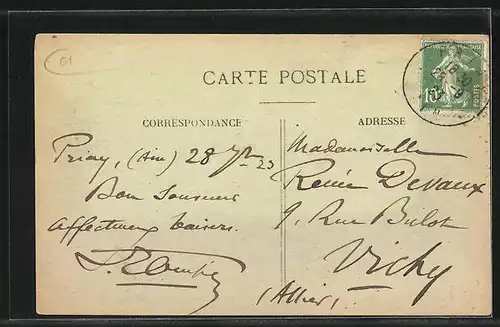 01
CARTE POSTALE
CORRESPONDANCE
ADRESSE
Priay, (Ain) 28 7bre 23
Bon Souvenir
Affectueux baisers.
Mademoiselle
Renée Devaux
9, Rue Bulot
Vichy
(Allier)
15
POSTES